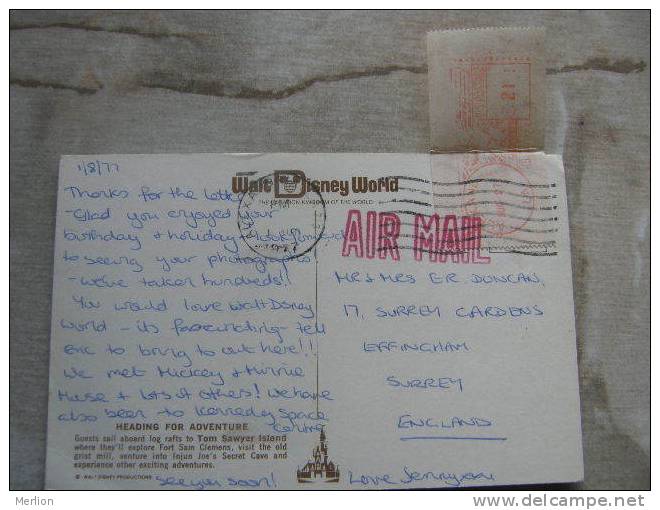 1/8/77
Thanks for the letter
- Glad you enjoyed your
birthday & holiday
to seeing your photographs!
- we've taken hundreds!!
You would love Walt Disney
World - its fascinating - tell
Eric to bring to out here!!
We met Mickey & Minnie
Muse & lots of others! We have
also been to Kennedy Space
Centre
See you soon!
Walt Disney World
THE VACATION KINGDOM OF THE WORLD
AIR MAIL
21
MR & MRS E R. DUNCAN,
17, SURREY GARDENS
EFFINGHAM
SURREY
ENGLAND
Love Jenny xxx
HEADING FOR ADVENTURE
Guests sail aboard log rafts to Tom Sawyer Island
where they'll explore Fort Sam Clemens, visit the old
grist mill, venture into Injun Joe's Secret Cave and
experience other exciting adventures.
© WALT DISNEY PRODUCTIONS
Merlion
www.delcampe.net